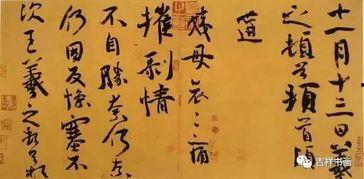 十一月十三日羲
之頓首頓首頃
遘
姨母哀〻痛
摧剝情
不自勝奈何奈
何因反慘塞不
次王羲之頓首
吉祥书画